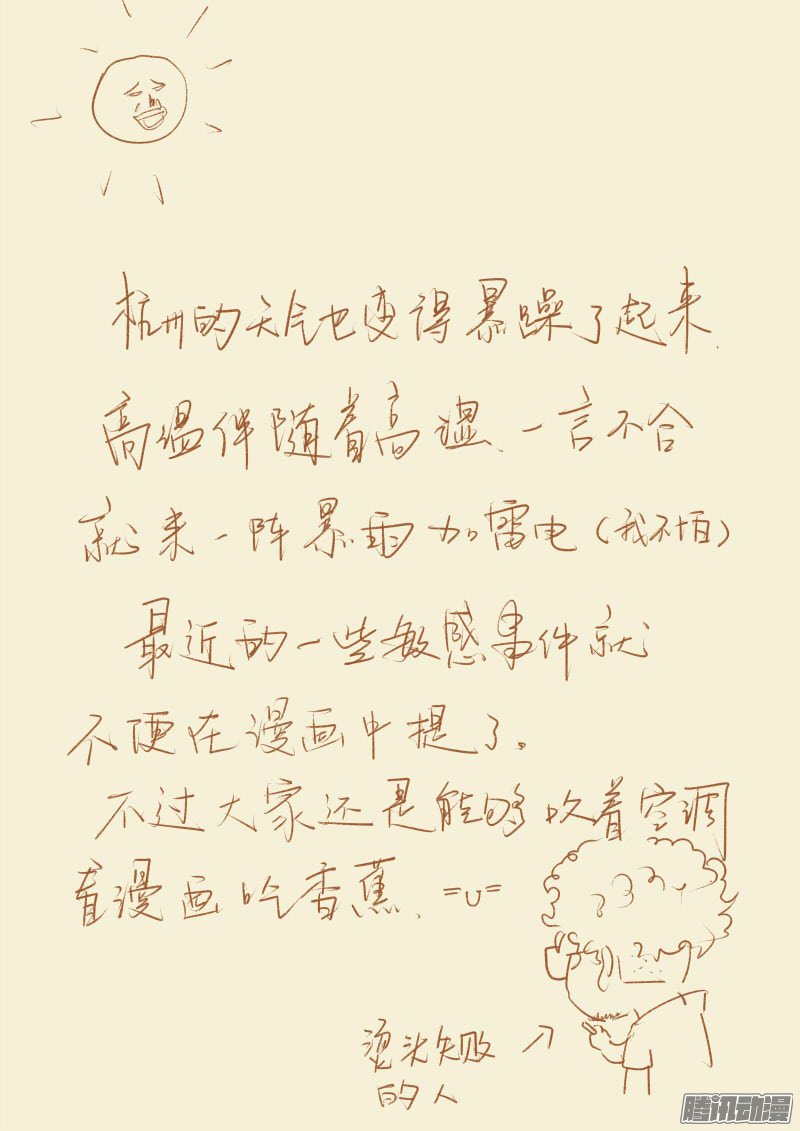 杭州的天气也变得暴躁了起来、
高温伴随着高湿、一言不合
就来一阵暴雨加雷电(我不怕)
最近的一些敏感事件就
不便在漫画中提了。
不过大家还是能够吹着空调
看漫画吃香蕉、=u=
烫头失败
的人
腾讯动漫